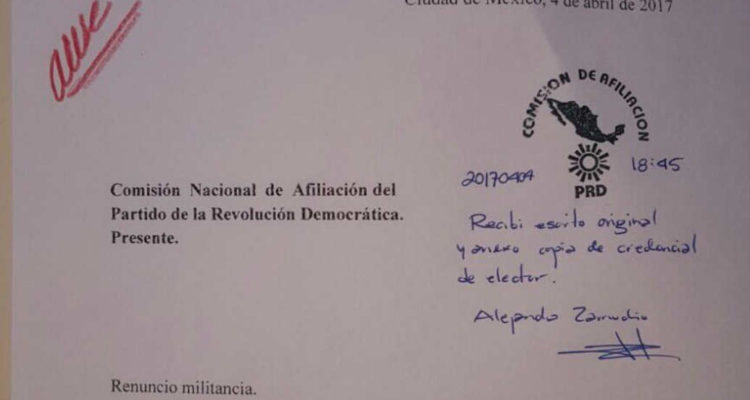 Ciudad de México, 4 de abril de 2017
acuse
COMISION DE AFILIACION
PRD
20170404
18:45
Comisión Nacional de Afiliación del
Partido de la Revolución Democrática.
Presente.
Recibi escrito original
y anexo copia de credencial
de elector.
Alejandro Zamudio
Renuncio militancia.